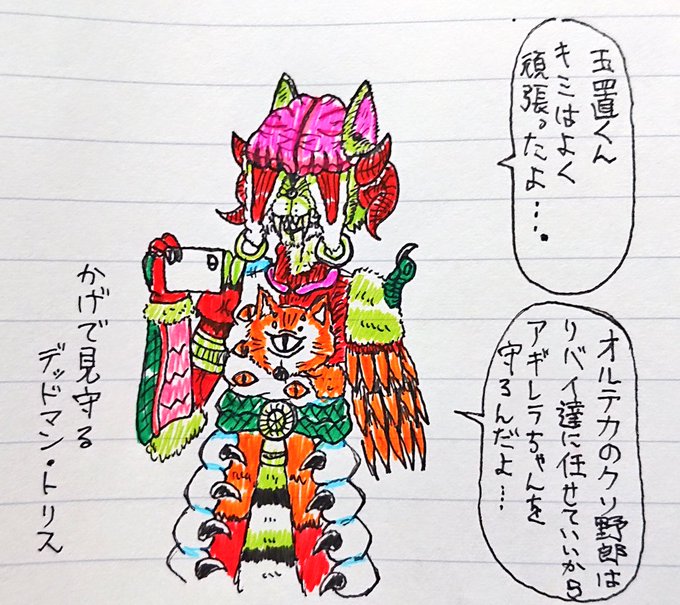 玉置くん
キミはよく
頑張ったよ・・・.
オルテカのクソ野郎は
リバイ達に任せていいから
アギレラちゃんを
守るんだよ・・・
かげで見守る
デッドマン・トリス